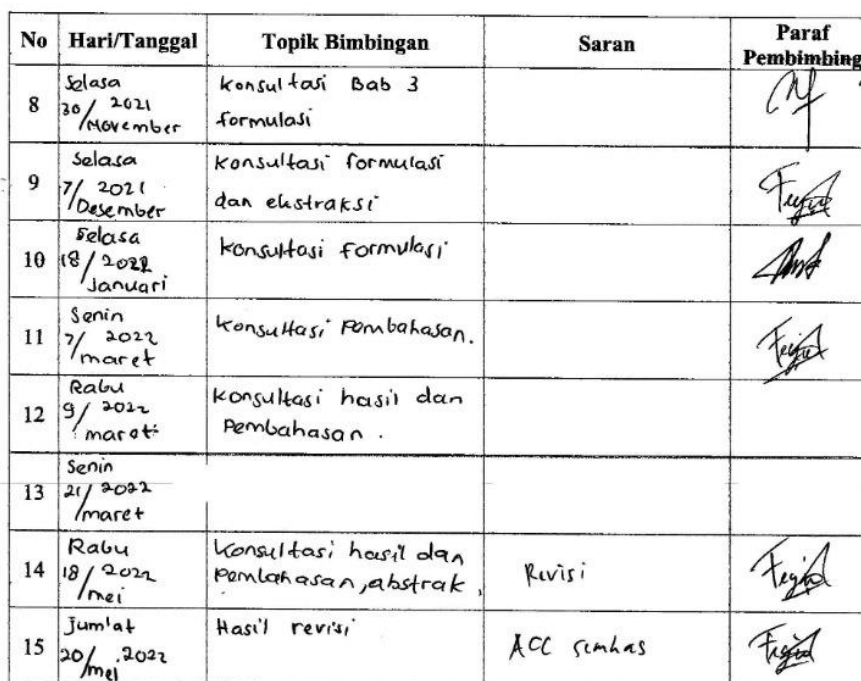 No Hari/Tanggal Topik Bimbingan Saran Paraf
Pembimbing
8 Selasa 30/November 2021 Konsultasi Bab 3
formulasi
9 Selasa 7/Desember 2021 Konsultasi formulasi
dan ekstraksi
10 Selasa 18/Januari 2022 Konsultasi formulasi
11 Senin 7/maret 2022 Konsultasi Pembahasan.
12 Rabu 9/maret 2022 Konsultasi hasil dan
Pembahasan.
13 Senin 21/maret 2022
14 Rabu 18/mei 2022 Konsultasi hasil dan
pembahasan, abstrak, Revisi
15 Jum'at 20/mei 2022 Hasil revisi ACC semhas